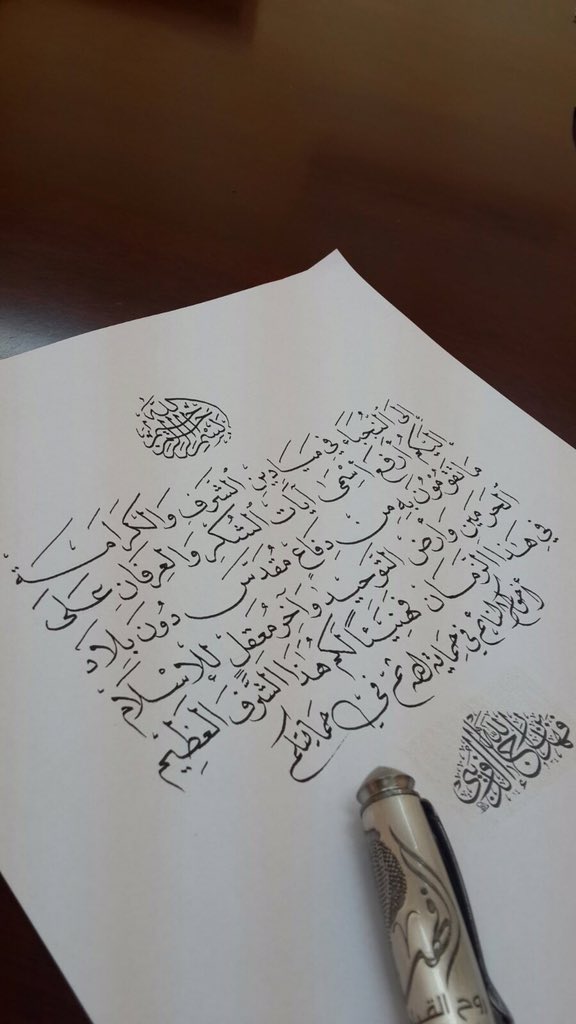 بسم الله الرحمن الرحيم
إلى النجباء في ميادين الشرف والكرامة
إليكم أرفع أسمى آيات الشكر والعرفان على
ما تقومون به من دفاع مقدس دون بلاد
الحرمين وأرض التوحيد وآخر معقل للإسلام
في هذا الزمان فهنيئاً لكم هذا الشرف العظيم
أخوكم النائم في حماية الله ثم في حمايتكم
فهد
روح القلم